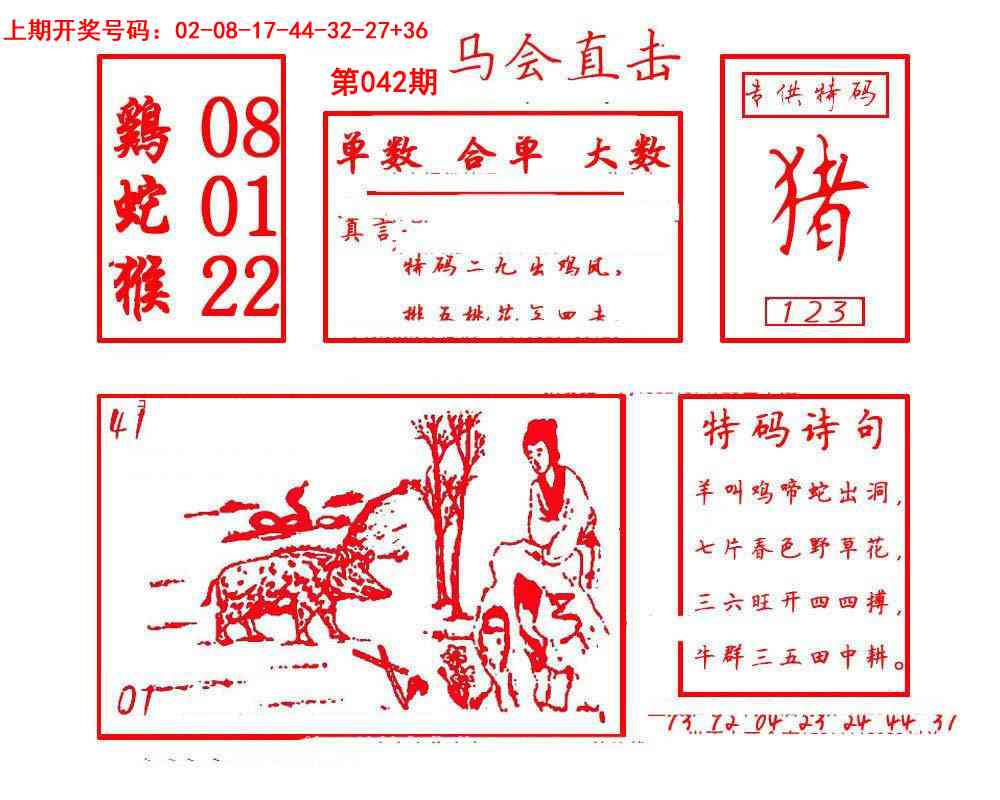 上期开奖号码：02-08-17-44-32-27+36
第042期
马会直击
鷄 08
蛇 01
猴 22
单数 合单 大数
真言:
特码二九出鸡凤,
专供特码
猪
123
41
01
特码诗句
羊叫鸡啼蛇出洞,
七片春色野草花,
三六旺开四四搏,
牛群三五田中耕。
13 12 04 23 24 44 31